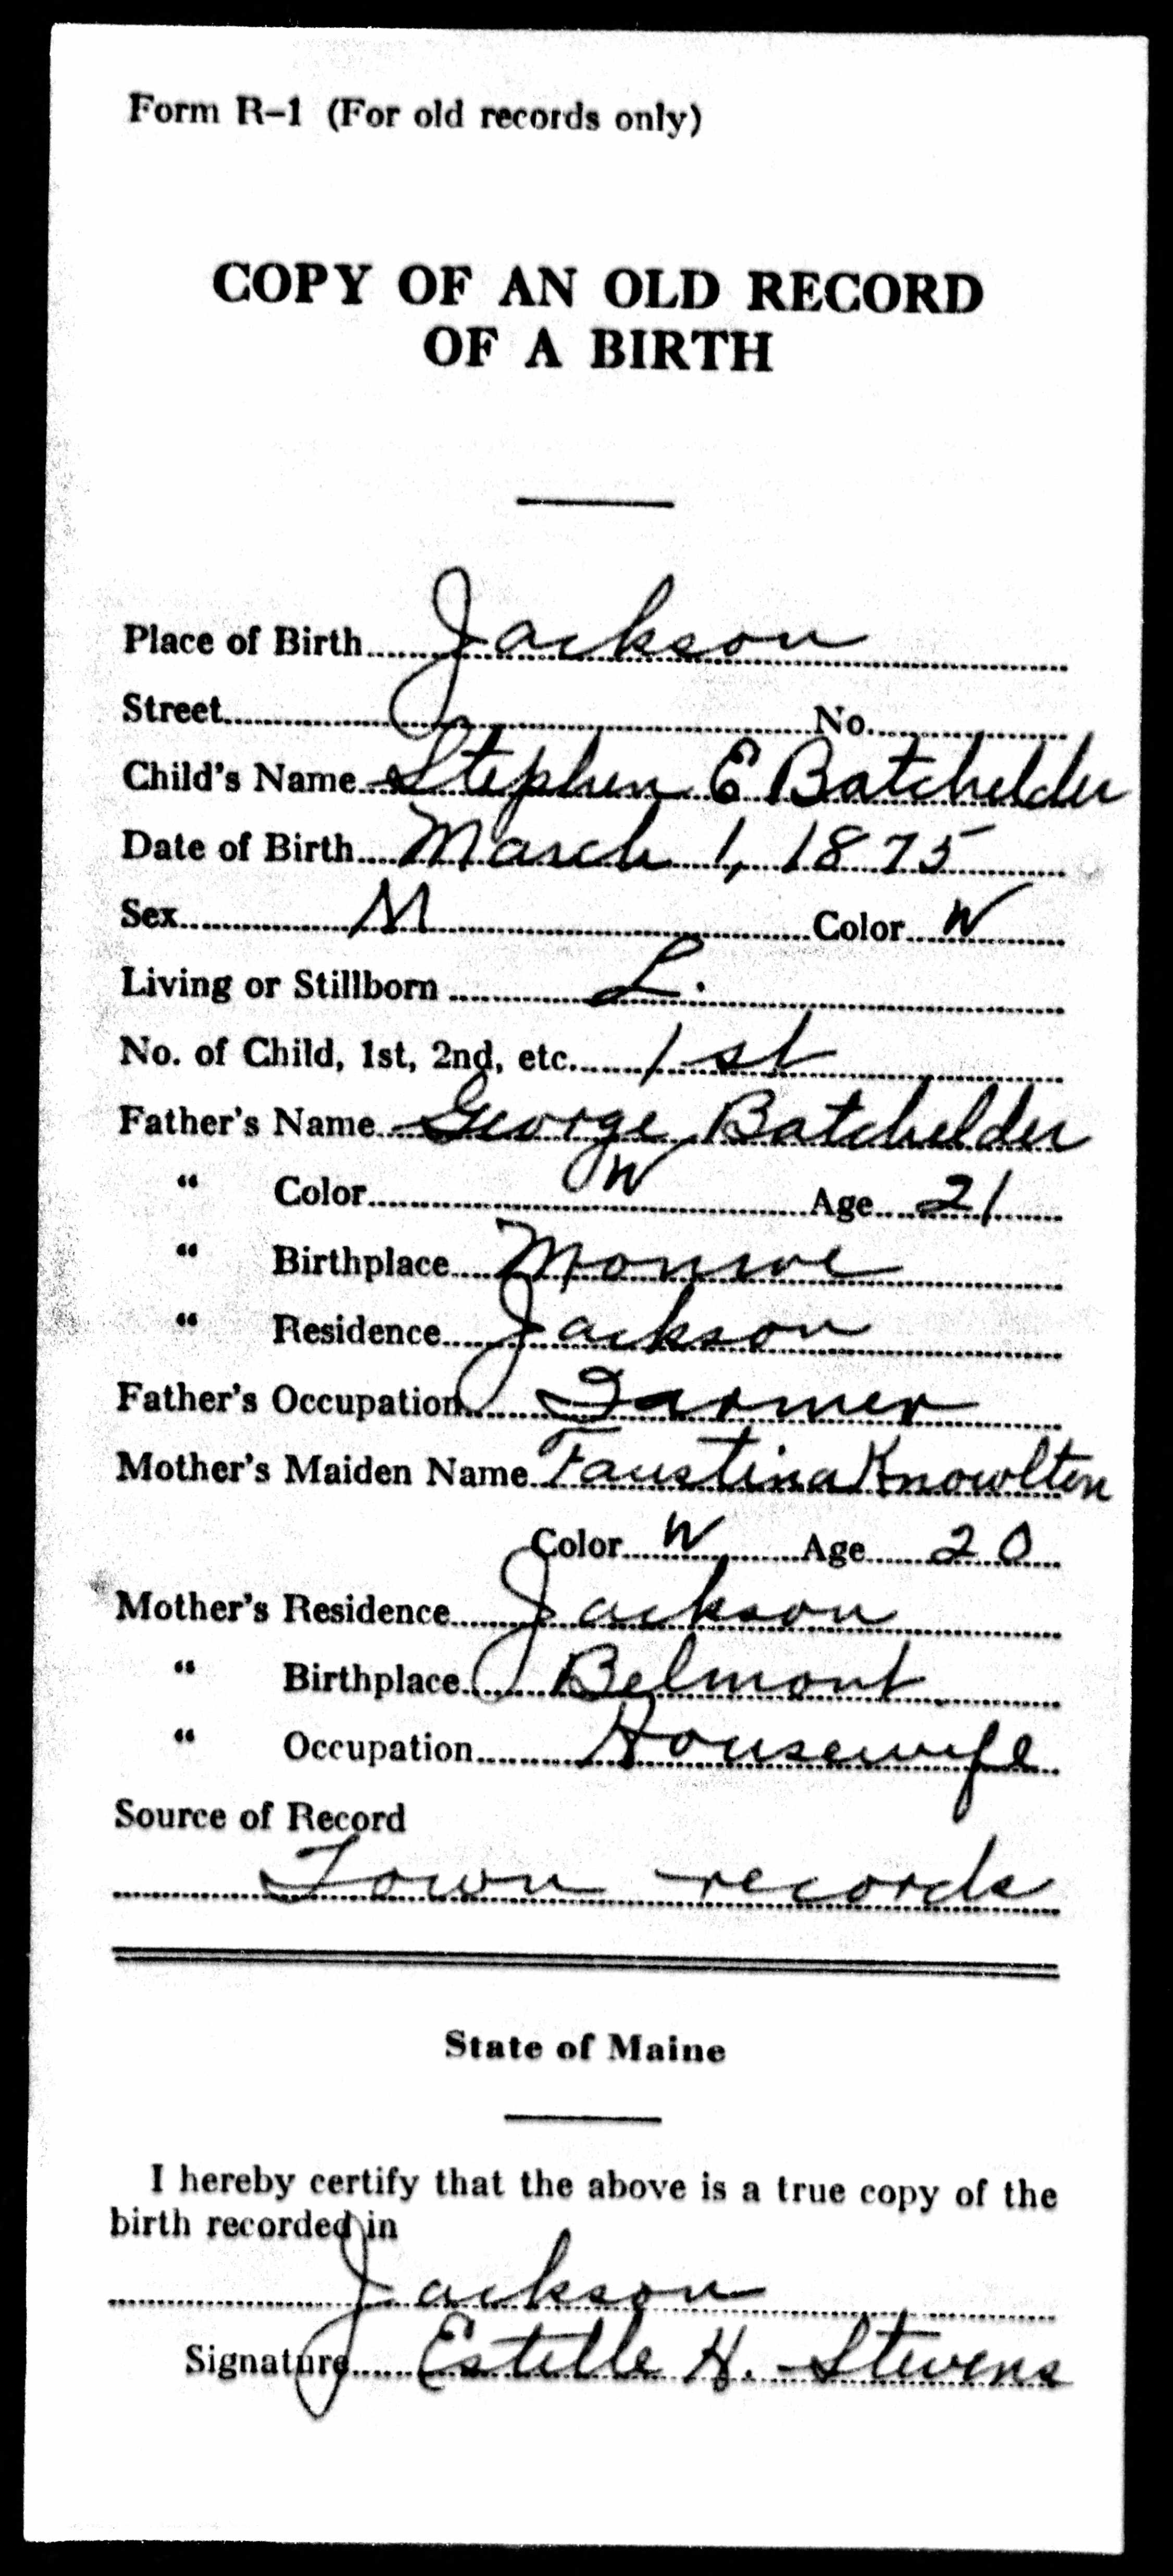 Form R-1 (For old records only)
COPY OF AN OLD RECORD
OF A BIRTH
Place of Birth Jackson
Street No.
Child's Name Stephen E Batchelder
Date of Birth March 1, 1875
Sex M Color W
Living or Stillborn L.
No. of Child, 1st, 2nd, etc. 1st
Father's Name George Batchelder
" Color W Age 21
" Birthplace Monroe
" Residence Jackson
Father's Occupation Farmer
Mother's Maiden Name Faustina Knowlton
Color W Age 20
Mother's Residence Jackson
" Birthplace Belmont
" Occupation Housewife
Source of Record
Town records
State of Maine
I hereby certify that the above is a true copy of the
birth recorded in
Jackson
Signature Estelle H. Stevens